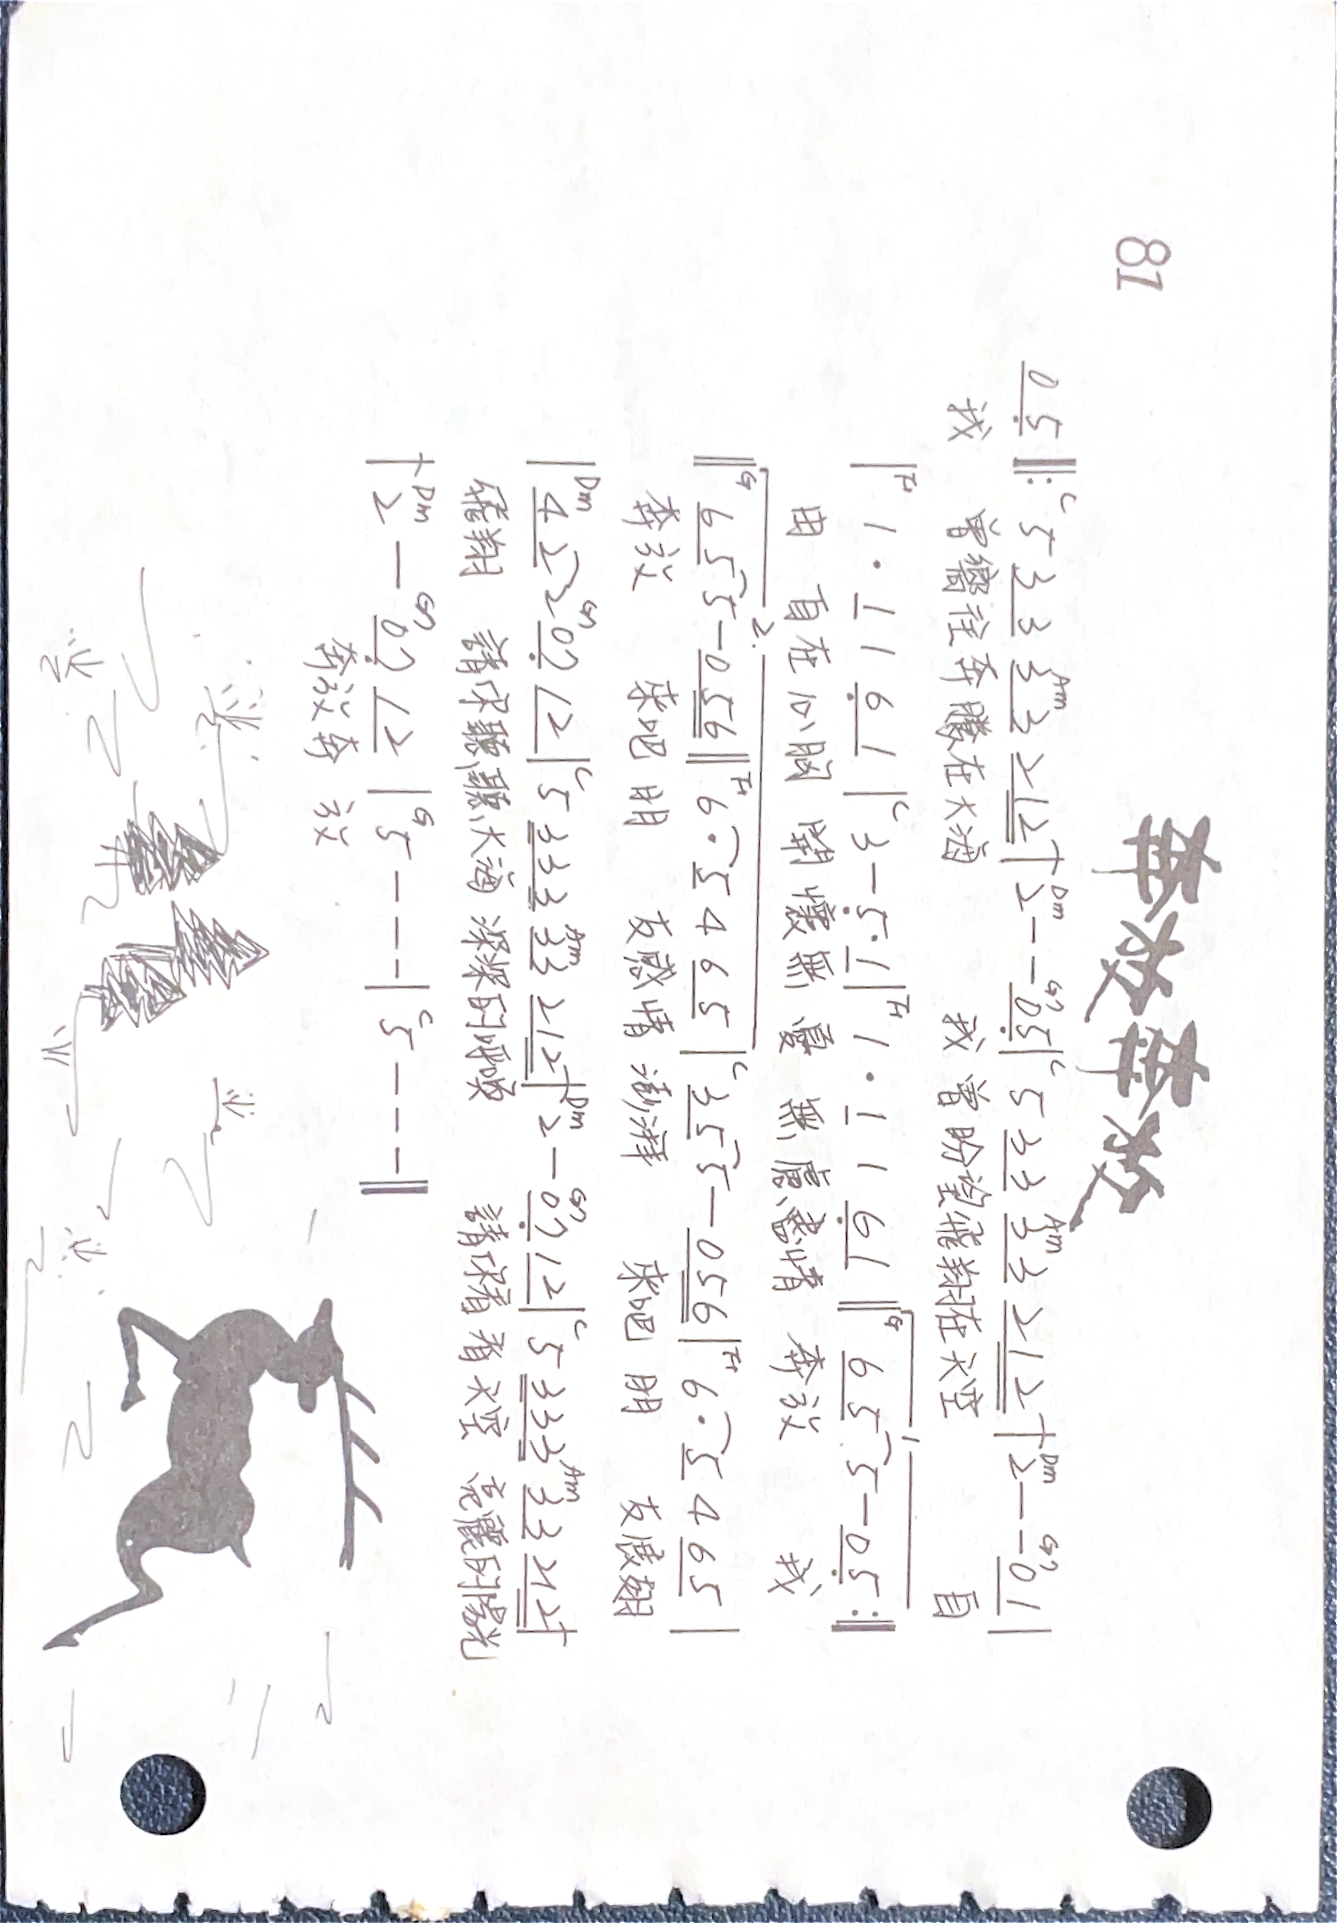 奔放奔放
81
0 5 ‖: C 5 3 3 Am 3 3 2 1 2 | Dm 2 - - G7 0 5 | C 5 3 3 Am 3 3 2 1 2 | Dm 2 - - G7 0 1 |
我 曾嚮往奔騰在大海 我曾盼望飛翔在天空 自
| F 1 · 1 1 6 1 | C 3 - 5 · 1 | F 1 · 1 1 6 1 ‖ G 1 6 5 5 - 0 5 :‖
由 自在心胸 開懷無憂 無慮盡情 奔放 我
‖ G 2. 6 5 5 - 0 5 6 ‖ F 6 · 5 4 6 5 | C 3 5 5 - 0 5 6 | F 6 · 5 4 6 5 |
奔放 來吧朋 友感情澎湃 來吧朋 友展翅
| Dm 4 2 2 G7 0 7 1 2 | C 5 3 3 3 Am 3 3 2 1 2 | Dm 2 - G7 0 7 1 2 | C 5 3 3 3 Am 3 3 2 1 2 |
飛翔 請你聽聽大海深深的呼喚 請你看看天空亮麗的陽光
| Dm 2 - G7 0 7 1 2 | G 5 - - - | C 5 - - - ‖
奔放奔 放